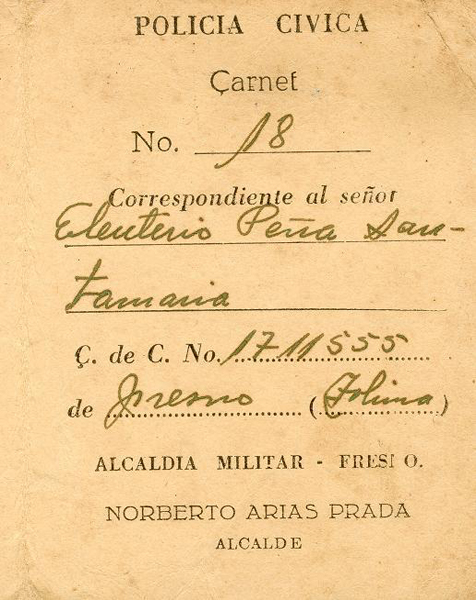 POLICIA CIVICA
Carnet
No. 18
Correspondiente al señor
Eleuterio Peña San-
tamaria
C. de C. No. 1711555
de Fresno (Tolima)
ALCALDIA MILITAR - FRESNO.
NORBERTO ARIAS PRADA
ALCALDE